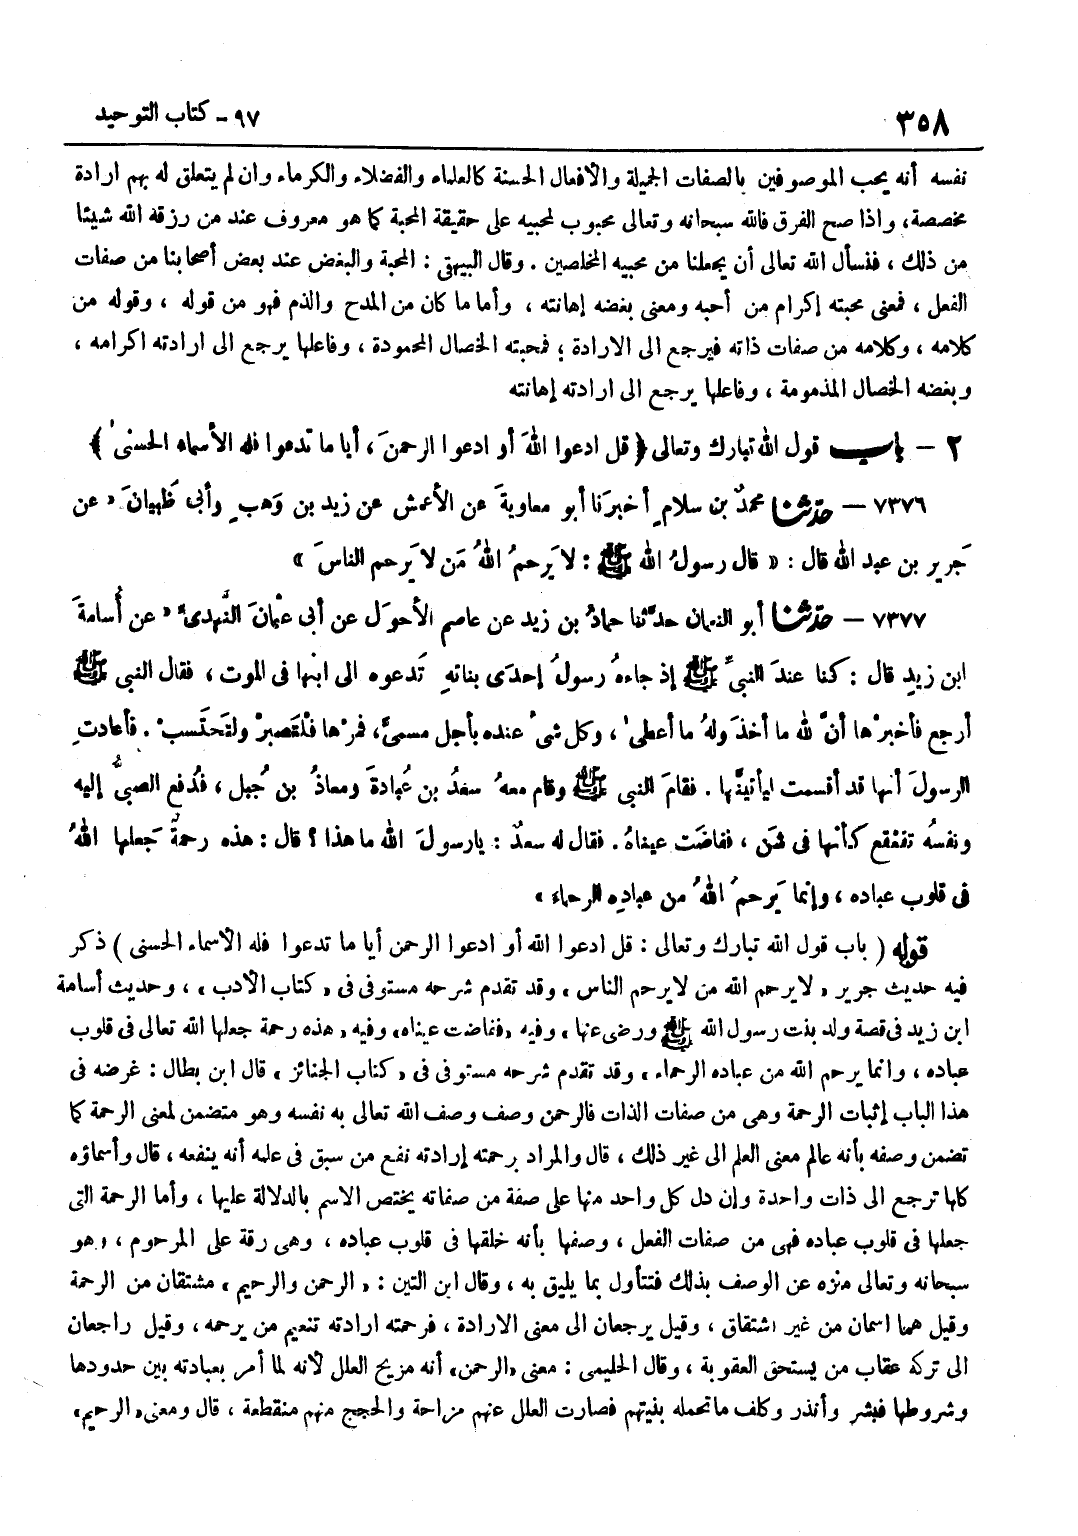 ٣٥٨
٩٧ - كتاب التوحيد
نفسه أنه يحب الموصوفين بالصفات الجميلة والأفعال الحسنة كالعلماء والفضلاء والكرماء وان لم يتعلق له بهم ارادة
مخصصة، واذا صح الفرق فالله سبحانه وتعالى محبوب لمحبيه على حقيقة المحبة كما هو معروف عند من رزقه الله شيئا
من ذلك ، فنسأل الله تعالى أن يجعلنا من محبيه المخلصين . وقال البيهقى : المحبة والبغض عند بعض أصحابنا من صفات
الفعل ، فمعنى محبته إكرام من أحبه ومعنى بغضه إهانته ، وأما ما كان من المدح والذم فهو من قوله ، وقوله من
كلامه ، وكلامه من صفات ذاته فيرجع الى الارادة ؛ فمحبته الخصال المحمودة ، وفاعلها يرجع الى ارادته اكرامه ،
وبغضه الخصال المذمومة ، وفاعلها يرجع الى ارادته إهانته
٢ - باب قول الله تبارك وتعالى ﴿ قل ادعوا اللهَ أو ادعوا الرحمنَ ، أيا ما تدعوا فله الأسماء الحسنىٰ ﴾
٧٣٧٦ - حدّثنا محمدُ بن سلامٍ أخبرَنا أبو معاويةَ عن الأعمش عن زيد بن وَهبٍ وأبى ظَبيانَ « عن
جَرير بن عبد الله قال : « قال رسولُ الله ﷺ : لا يَرحمُ اللهُ مَن لا يَرحم الناسَ »
٧٣٧٧ - حدّثنا أبو النعمان حدَّثنا حمادُ بن زيد عن عاصم الأحوَل عن أبى عثمانَ النَّهدىِّ « عن أُسامةَ
ابن زيدٍ قال : كنا عندَ النبىِّ ﷺ إذ جاءهُ رسولُ إحدَى بناتهِ تَدعوه الى ابنها فى الموت ، فقال النبى ﷺ
أرجع فأخبرْها أنَّ لله ما أخذَ ولهُ ما أعطىٰ ، وكل شىءٌ عنده بأجل مسمىً، فمرْها فلْتَصبرْ ولتَحتَسبْ . فأعادتِ
الرسولَ أنها قد أقسمت ليأتينَّها . فقامَ النبى ﷺ وقام معهُ سعدُ بن عُبادةَ ومعاذُ بن جُبل ، فدُفع الصبىُّ إليه
ونفسُه تقعْقع كأنها فى شَن ، ففاضَت عيناهُ . فقال له سعدٌ : يارسولَ الله ما هذا ؟ قال : هذه رحمةٌ جَعلها اللهُ
فى قلوب عباده ، وإنما يَرحمُ اللهُ من عبادِه الرحماء »
قوله ( باب قول الله تبارك وتعالى : قل ادعوا الله أو ادعوا الرحمن أيا ما تدعوا فله الاسماء الحسنى ) ذكر
فيه حديث جرير « لايرحم الله من لايرحم الناس » وقد تقدم شرحه مستوفى فى « كتاب الأدب » ، وحديث أسامة
ابن زيد فى قصة ولد بنت رسول الله ﷺ ورضى عنها ، وفيه « ففاضت عيناه» وفيه « هذه رحمة جعلها الله تعالى فى قلوب
عباده ، وانما يرحم الله من عباده الرحماء » وقد تقدم شرحه مستوفى فى « كتاب الجنائز » قال ابن بطال : غرضه فى
هذا الباب إثبات الرحمة وهى من صفات الذات فالرحمن وصف وصف الله تعالى به نفسه وهو متضمن لمعنى الرحمة كما
تضمن وصفه بأنه عالم معنى العلم الى غير ذلك ، قال والمراد برحمته إرادته نفع من سبق فى علمه أنه ينفعه ، قال وأسماؤه
كلها ترجع الى ذات واحدة وإن دل كل واحد منها على صفة من صفاته يختص الاسم بالدلالة عليها ، وأما الرحمة التى
جعلها فى قلوب عباده فهى من صفات الفعل ، وصفها بأنه خلقها فى قلوب عباده ، وهى رقة على المرحوم ، وهو
سبحانه وتعالى منزه عن الوصف بذلك فتتأول بما يليق به ، وقال ابن التين : « الرحمن والرحيم » مشتقان من الرحمة
وقيل هما اسمان من غير اشتقاق ، وقيل يرجعان الى معنى الارادة ، فرحمته ارادته تنعيم من يرحمه ، وقيل راجعان
الى تركه عقاب من يستحق العقوبة ، وقال الحليمى : معنى «الرحمن» أنه مزيح العلل لأنه لما أمر بعبادته بين حدودها
وشروطها فبشر وأنذر وكلف ماتحمله بنيتهم فصارت العلل عنهم مزاحة والحجج منهم منقطعة ، قال ومعنى« الرحيم»